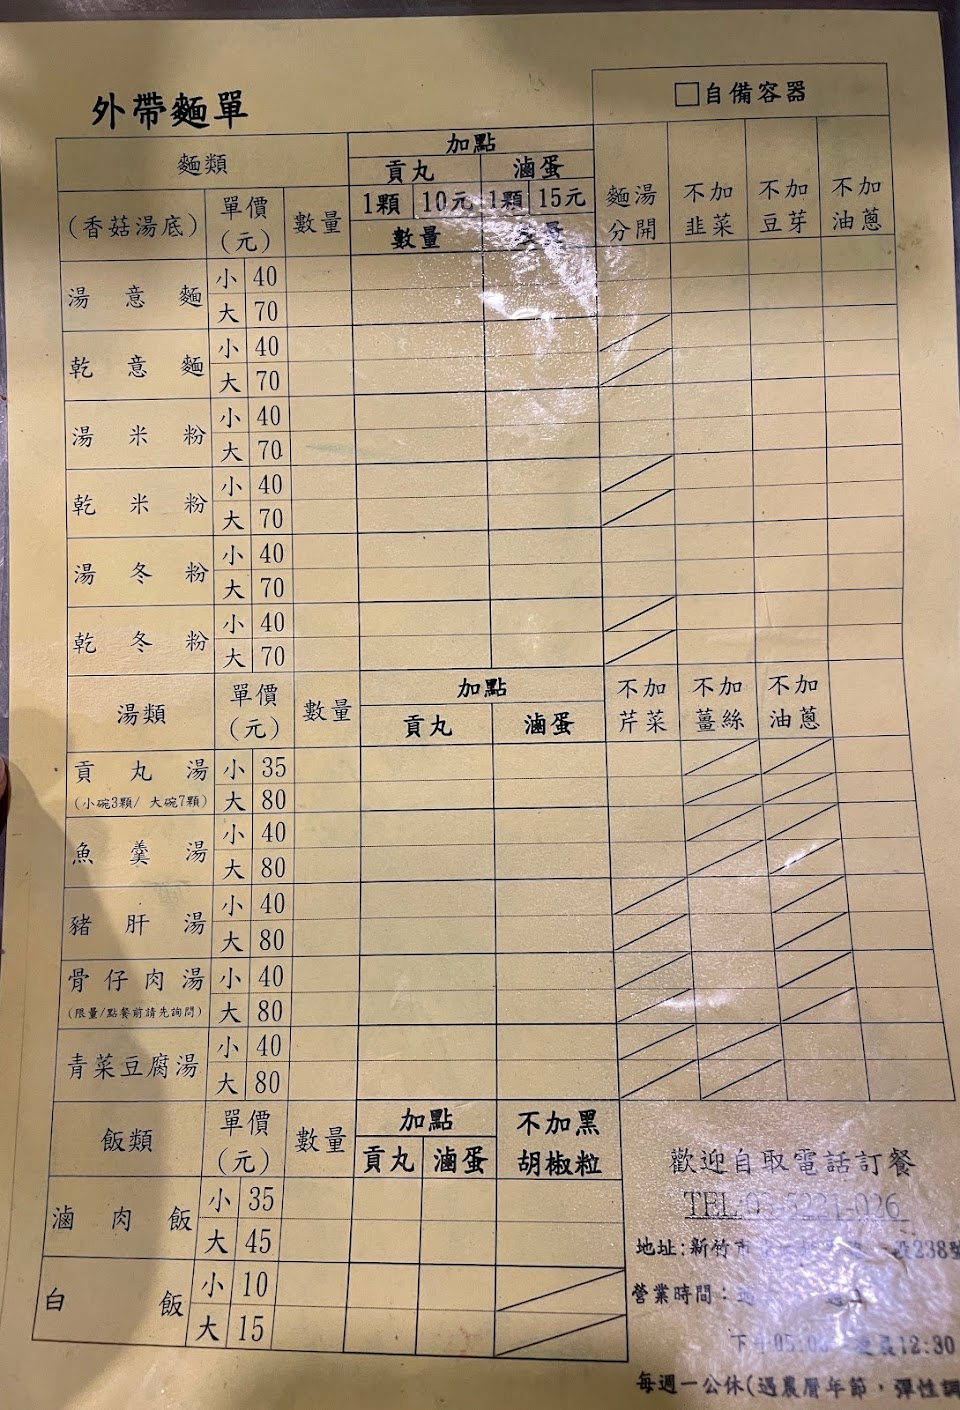 外帶麵單
□自備容器
麵類 加點
貢丸 滷蛋
1顆 10元 1顆 15元
(香菇湯底) 單價(元) 數量 數量 麵湯分開 不加韭菜 不加豆芽 不加油蔥
湯意麵 小 40
大 70
乾意麵 小 40
大 70
湯米粉 小 40
大 70
乾米粉 小 40
大 70
湯冬粉 小 40
大 70
乾冬粉 小 40
大 70
湯類 單價(元) 數量 加點 不加芹菜 不加薑絲 不加油蔥
貢丸 滷蛋
貢丸湯 小 35
(小碗3顆/ 大碗7顆) 大 80
魚羹湯 小 40
大 80
豬肝湯 小 40
大 80
骨仔肉湯 小 40
(限量/點餐前請先詢問) 大 80
青菜豆腐湯 小 40
大 80
飯類 單價(元) 數量 加點 不加黑胡椒粒
貢丸 滷蛋
滷肉飯 小 35
大 45
白飯 小 10
大 15
歡迎自取電話訂餐
TEL:03-5221-026
地址:新竹市 238號
營業時間:
下午05:0 12:30
每週一公休(遇農曆年節,彈性調